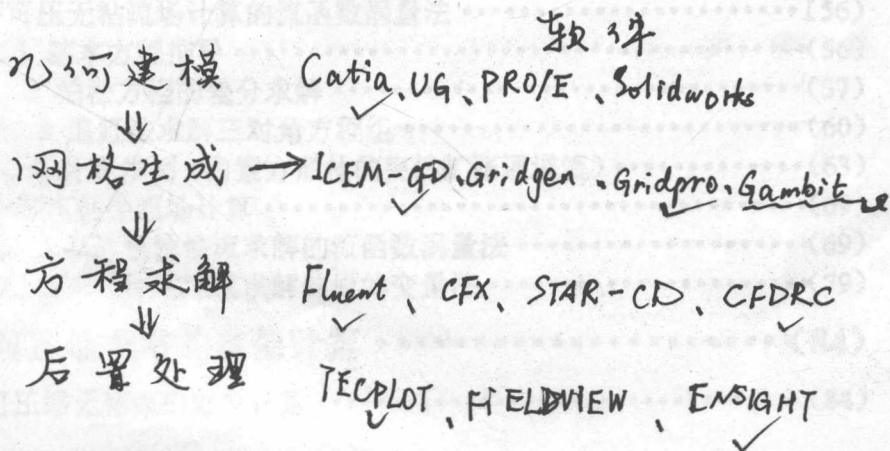 软件
几何建模 Catia、UG、PRO/E、Solidworks
⇓
网格生成 → ICEM-CFD、Gridgen、Gridpro、Gambit
⇓
方程求解 Fluent、CFX、STAR-CD、CFDRC
⇓
后置处理 TECPLOT、FIELDVIEW、ENSIGHT